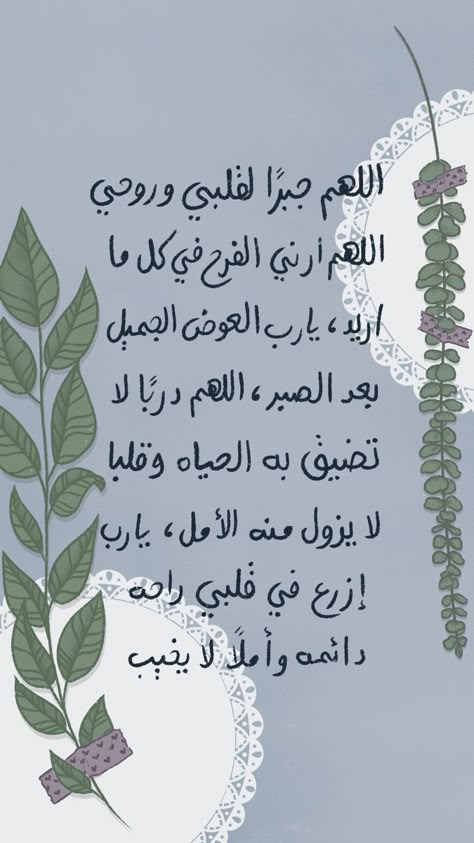 اللهم جبرًا لقلبي وروحي
اللهم أرني الفرح في كل ما
اريد، يارب العوض الجميل
بعد الصبر، اللهم دربًا لا
تضيق به الحياه وقلبا
لا يزول منه الأمل، يارب
إزرع في قلبي راحه
دائمه وأملًا لا يخيب